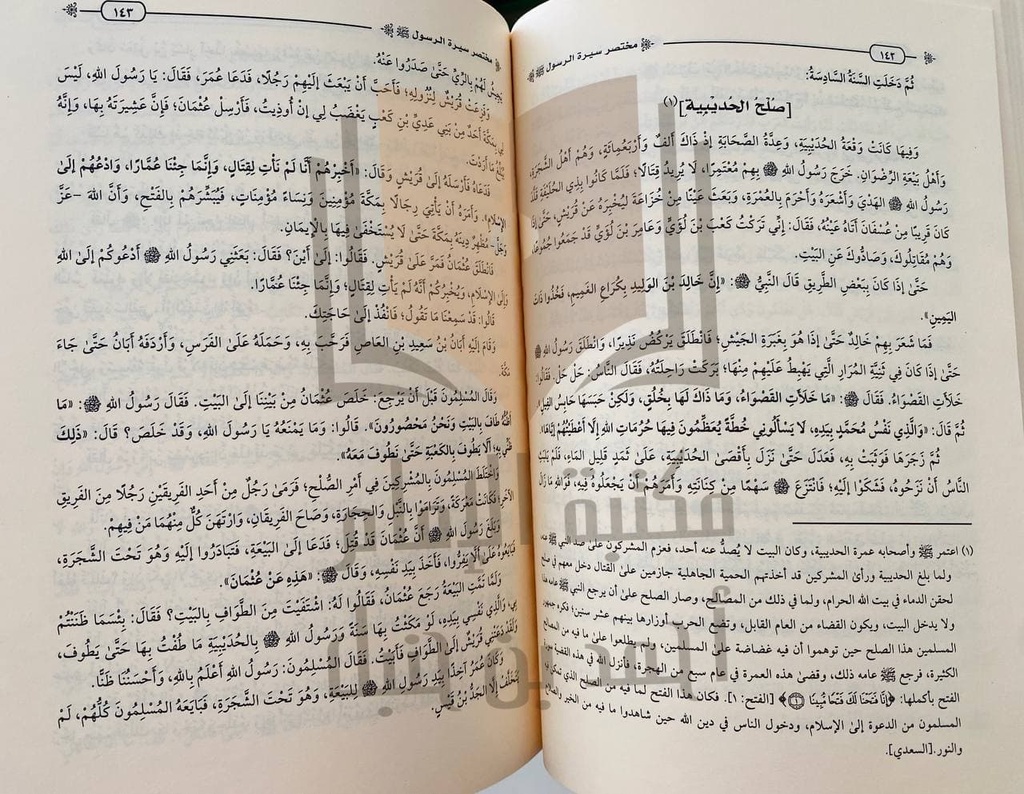 ١٤٢
مختصر سيرة الرسول ﷺ
ثُمَّ دَخَلَتِ السَّنَةُ السَّادِسَةُ:
[صُلْحُ الحُدَيْبِيَةِ](١)
وَفِيهَا كَانَتْ وَقْعَةُ الحُدَيْبِيَةِ، وَعِدَّةُ الصَّحَابَةِ إِذْ ذَاكَ أَلْفٌ وَأَرْبَعُمِائَةٍ، وَهُمْ أَهْلُ الشَّجَرَةِ،
وَأَهْلُ بَيْعَةِ الرِّضْوَانِ. خَرَجَ رَسُولُ اللهِ ﷺ بِهِمْ مُعْتَمِرًا، لَا يُرِيدُ قِتَالًا؛ فَلَمَّا كَانُوا بِذِي الحُلَيْفَةِ قَلَّدَ
رَسُولُ اللهِ ﷺ الهَدْيَ وَأَشْعَرَهُ وَأَحْرَمَ بِالعُمْرَةِ، وَبَعَثَ عَيْنًا مِنْ خُزَاعَةَ لِيُخْبِرَهُ عَنْ قُرَيْشٍ، حَتَّى إِذَا
كَانَ قَرِيبًا مِنْ عُسْفَانَ أَتَاهُ عَيْنُهُ، فَقَالَ: إِنِّي تَرَكْتُ كَعْبَ بْنَ لُؤَيٍّ وَعَامِرَ بْنَ لُؤَيٍّ قَدْ جَمَعُوا جُمُوعًا،
وَهُمْ مُقَاتِلُوكَ، وَصَادُّوكَ عَنِ البَيْتِ.
حَتَّى إِذَا كَانَ بِبَعْضِ الطَّرِيقِ قَالَ النَّبِيُّ ﷺ: «إِنَّ خَالِدَ بْنَ الوَلِيدِ بِكُرَاعِ الغَمِيمِ، فَخُذُوا ذَاتَ
اليَمِينِ».
فَمَا شَعَرَ بِهِمْ خَالِدٌ حَتَّى إِذَا هُوَ بِغَبَرَةِ الجَيْشِ؛ فَانْطَلَقَ يَرْكُضُ نَذِيرًا، وَانْطَلَقَ رَسُولُ اللهِ ﷺ
حَتَّى إِذَا كَانَ فِي ثَنِيَّةِ المُرَارِ الَّتِي يَهْبِطُ عَلَيْهِمْ مِنْهَا؛ بَرَكَتْ رَاحِلَتُهُ، فَقَالَ النَّاسُ: حَلْ حَلْ. فَقَالُوا:
خَلَأَتِ القَصْوَاءُ. فَقَالَ ﷺ: «مَا خَلَأَتِ القَصْوَاءُ، وَمَا ذَاكَ لَهَا بِخُلُقٍ، وَلَكِنْ حَبَسَهَا حَابِسُ الفِيلِ»
ثُمَّ قَالَ: «وَالَّذِي نَفْسُ مُحَمَّدٍ بِيَدِهِ، لَا يَسْأَلُونِي خُطَّةً يُعَظِّمُونَ فِيهَا حُرُمَاتِ اللهِ إِلَّا أَعْطَيْتُهُمْ إِيَّاهَا».
ثُمَّ زَجَرَهَا فَوَثَبَتْ بِهِ، فَعَدَلَ حَتَّى نَزَلَ بِأَقْصَى الحُدَيْبِيَةِ، عَلَى ثَمَدٍ قَلِيلِ المَاءِ، فَلَمْ يُلَبِّثْهُ
النَّاسُ أَنْ نَزَحُوهُ، فَشَكَوْا إِلَيْهِ؛ فَانْتَزَعَ ﷺ سَهْمًا مِنْ كِنَانَتِهِ وَأَمَرَهُمْ أَنْ يَجْعَلُوهُ فِيهِ، فَوَاللهِ مَا زَالَ
(١) اعتمر ﷺ وأصحابه عمرة الحديبية، وكان البيت لا يُصدُّ عنه أحد، فعزم المشركون على صد النبي ﷺ عنه،
ولما بلغ الحديبية ورأى المشركين قد أخذتهم الحمية الجاهلية جازمين على القتال دخل معهم في صلح
لحقن الدماء في بيت الله الحرام، ولما في ذلك من المصالح، وصار الصلح على أن يرجع النبي ﷺ عامه هذا
ولا يدخل البيت، ويكون القضاء من العام القابل، وتضع الحرب أوزارها بينهم عشر سنين؛ فكره جمهور
المسلمين هذا الصلح حين توهموا أن فيه غضاضة على المسلمين، ولم يطلعوا على ما فيه من المصالح
الكثيرة، فرجع ﷺ عامه ذلك، وقضى هذه العمرة في عام سبع من الهجرة، فأنزل الله في هذه القضية سورة
الفتح بأكملها: ﴿إِنَّا فَتَحْنَا لَكَ فَتْحًا مُّبِينًا ۝١﴾ [الفتح: ١]. فكان هذا الفتح لما فيه من الصلح الذي تمكن فيه
المسلمون من الدعوة إلى الإسلام، ودخول الناس في دين الله حين شاهدوا ما فيه من الخير والصلاح
والنور.[السعدي].
١٤٣
مختصر سيرة الرسول ﷺ
يَجِيشُ لَهُمْ بِالرِّيِّ حَتَّى صَدَرُوا عَنْهُ.
وَفَزِعَتْ قُرَيْشٌ لِنُزُولِهِ؛ فَأَحَبَّ أَنْ يَبْعَثَ إِلَيْهِمْ رَجُلًا، فَدَعَا عُمَرَ، فَقَالَ: يَا رَسُولَ اللهِ، لَيْسَ
بِمَكَّةَ أَحَدٌ مِنْ بَنِي عَدِيِّ بْنِ كَعْبٍ يَغْضَبُ لِي إِنْ أُوذِيتُ، فَأَرْسِلْ عُثْمَانَ؛ فَإِنَّ عَشِيرَتَهُ بِهَا، وَإِنَّهُ
يُبَلِّغُ مَا أَرَدْتَ.
فَدَعَاهُ فَأَرْسَلَهُ إِلَى قُرَيْشٍ وَقَالَ: «أَخْبِرْهُمْ أَنَّا لَمْ نَأْتِ لِقِتَالٍ، وَإِنَّمَا جِئْنَا عُمَّارًا، وَادْعُهُمْ إِلَى
الإِسْلَامِ». وَأَمَرَهُ أَنْ يَأْتِيَ رِجَالًا بِمَكَّةَ مُؤْمِنِينَ وَنِسَاءً مُؤْمِنَاتٍ، فَيُبَشِّرَهُمْ بِالفَتْحِ، وَأَنَّ اللهَ -عَزَّ
وَجَلَّ- مُظْهِرٌ دِينَهُ بِمَكَّةَ حَتَّى لَا يُسْتَخْفَى فِيهَا بِالإِيمَانِ.
فَانْطَلَقَ عُثْمَانُ فَمَرَّ عَلَى قُرَيْشٍ. فَقَالُوا: إِلَى أَيْنَ؟ فَقَالَ: بَعَثَنِي رَسُولُ اللهِ ﷺ أَدْعُوكُمْ إِلَى اللهِ
وَإِلَى الإِسْلَامِ، وَيُخْبِرُكُمْ أَنَّهُ لَمْ يَأْتِ لِقِتَالٍ؛ وَإِنَّمَا جِئْنَا عُمَّارًا.
قَالُوا: قَدْ سَمِعْنَا مَا تَقُولُ؛ فَانْفُذْ إِلَى حَاجَتِكَ.
وَقَامَ إِلَيْهِ أَبَانُ بْنُ سَعِيدِ بْنِ العَاصِ فَرَحَّبَ بِهِ، وَحَمَلَهُ عَلَى الفَرَسِ، وَأَرْدَفَهُ أَبَانُ حَتَّى جَاءَ
مَكَّةَ.
وَقَالَ المُسْلِمُونَ قَبْلَ أَنْ يَرْجِعَ: خَلَصَ عُثْمَانُ مِنْ بَيْنِنَا إِلَى البَيْتِ. فَقَالَ رَسُولُ اللهِ ﷺ: «مَا
أَظُنُّهُ طَافَ بِالبَيْتِ وَنَحْنُ مَحْصُورُونَ». قَالُوا: وَمَا يَمْنَعُهُ يَا رَسُولَ اللهِ، وَقَدْ خَلَصَ؟ قَالَ: «ذَلِكَ
ظَنِّي بِهِ؛ أَلَّا يَطُوفَ بِالكَعْبَةِ حَتَّى نَطُوفَ مَعَهُ».
وَاخْتَلَطَ المُسْلِمُونَ بِالمُشْرِكِينَ فِي أَمْرِ الصُّلْحِ؛ فَرَمَى رَجُلٌ مِنْ أَحَدِ الفَرِيقَيْنِ رَجُلًا مِنَ الفَرِيقِ
الآخَرِ فَكَانَتْ مَعْرَكَةٌ، وَتَرَامَوْا بِالنَّبْلِ وَالحِجَارَةِ، وَصَاحَ الفَرِيقَانِ، وَارْتَهَنَ كُلٌّ مِنْهُمَا مَنْ فِيهِمْ.
وَبَلَغَ رَسُولَ اللهِ ﷺ أَنَّ عُثْمَانَ قَدْ قُتِلَ؛ فَدَعَا إِلَى البَيْعَةِ، فَتَبَادَرُوا إِلَيْهِ وَهُوَ تَحْتَ الشَّجَرَةِ،
فَبَايَعُوهُ عَلَى أَلَّا يَفِرُّوا، فَأَخَذَ بِيَدِ نَفْسِهِ، وَقَالَ ﷺ: «هَذِهِ عَنْ عُثْمَانَ».
وَلَمَّا تَمَّتِ البَيْعَةُ رَجَعَ عُثْمَانُ، فَقَالُوا لَهُ: اشْتَفَيْتَ مِنَ الطَّوَافِ بِالبَيْتِ؟ فَقَالَ: بِئْسَمَا ظَنَنْتُمْ
بِي، وَالَّذِي نَفْسِي بِيَدِهِ، لَوْ مَكَثْتُ بِهَا سَنَةً وَرَسُولُ اللهِ ﷺ بِالحُدَيْبِيَةِ مَا طُفْتُ بِهَا حَتَّى يَطُوفَ،
وَلَقَدْ دَعَتْنِي قُرَيْشٌ إِلَى الطَّوَافِ فَأَبَيْتُ. فَقَالَ المُسْلِمُونَ: رَسُولُ اللهِ أَعْلَمُ بِاللهِ، وَأَحْسَنُنَا ظَنًّا.
وَكَانَ عُمَرُ آخِذًا بِيَدِ رَسُولِ اللهِ ﷺ لِلْبَيْعَةِ، وَهُوَ تَحْتَ الشَّجَرَةِ، فَبَايَعَهُ المُسْلِمُونَ كُلُّهُمْ، لَمْ
يَتَخَلَّفْ إِلَّا الجَدُّ بْنُ قَيْسٍ.